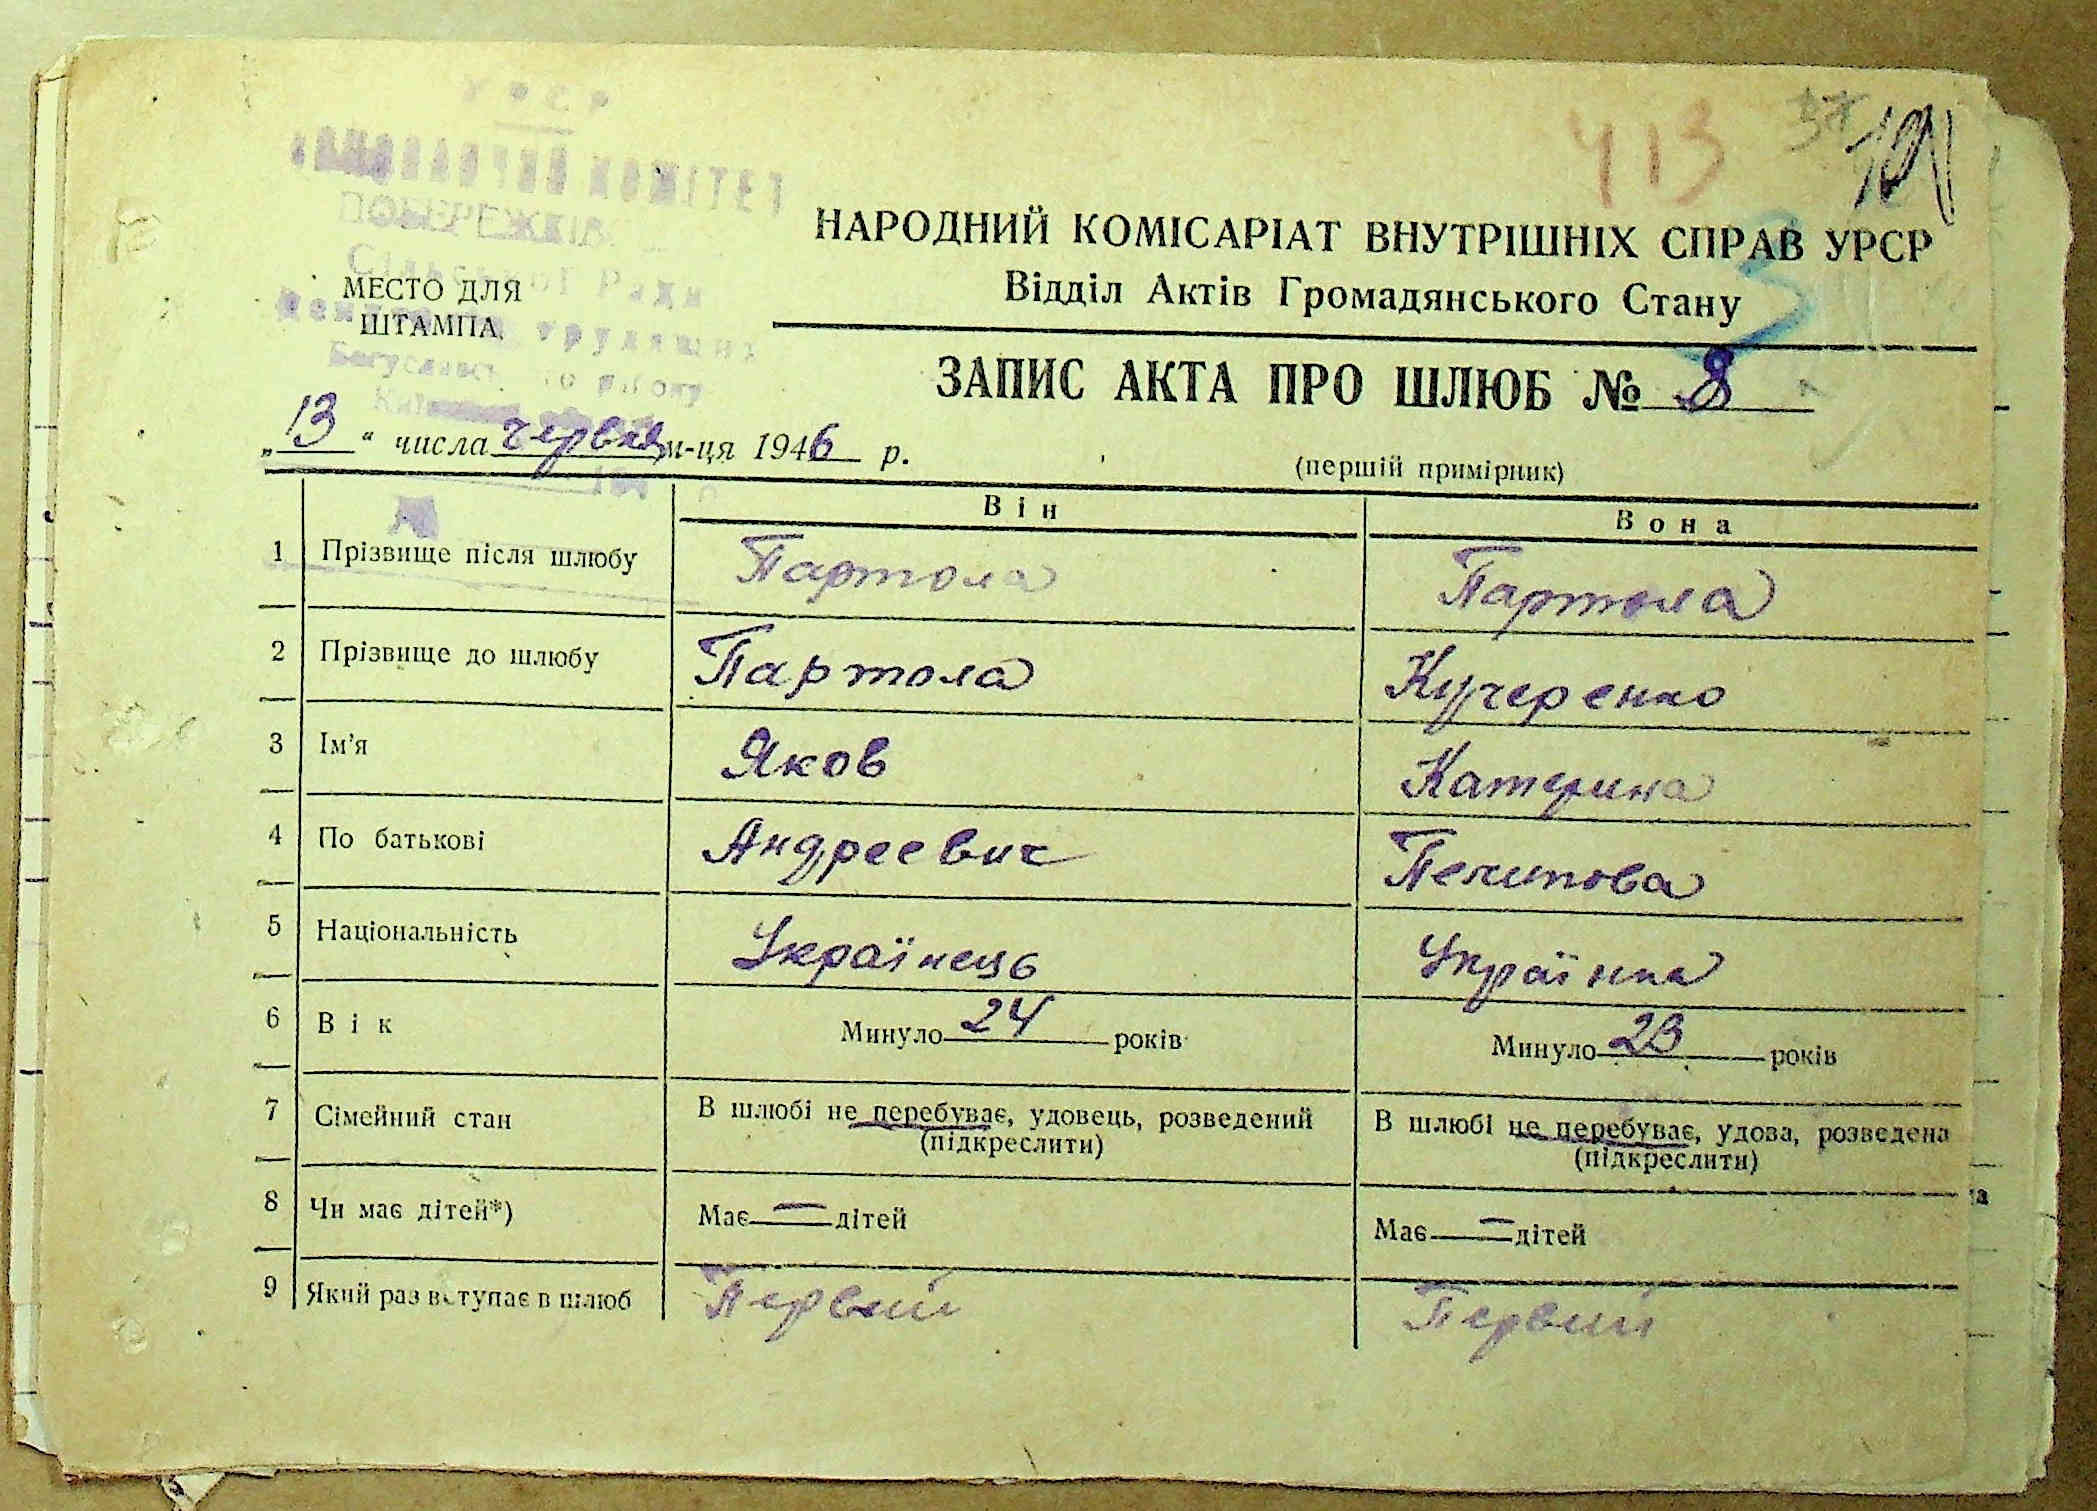 УРСР
КОМІТЕТ
ПОБЕРЕЖКІВ
Сільської Ради
трудящих
Київ
МЕСТО ДЛЯ
ШТАМПА
413 37
НАРОДНИЙ КОМІСАРІАТ ВНУТРІШНІХ СПРАВ УРСР
Відділ Актів Громадянського Стану
ЗАПИС АКТА ПРО ШЛЮБ № 8
„13“ числа червня м-ця 1946 р.
(першій примірник)
Він Вона
1 Прізвище після шлюбу Партола Партола
2 Прізвище до шлюбу Партола Кучеренко
3 Ім’я Яков Катерина
4 По батькові Андреевич Пелипова
5 Національність Українець Українка
6 Вік Минуло 24 років Минуло 23 років
7 Сімейний стан В шлюбі не перебуває, удовець, розведений В шлюбі не перебуває, удова, розведена
(підкреслити) (підкреслити)
8 Чи має дітей*) Має — дітей Має — дітей
9 Який раз вступає в шлюб Первий Первий